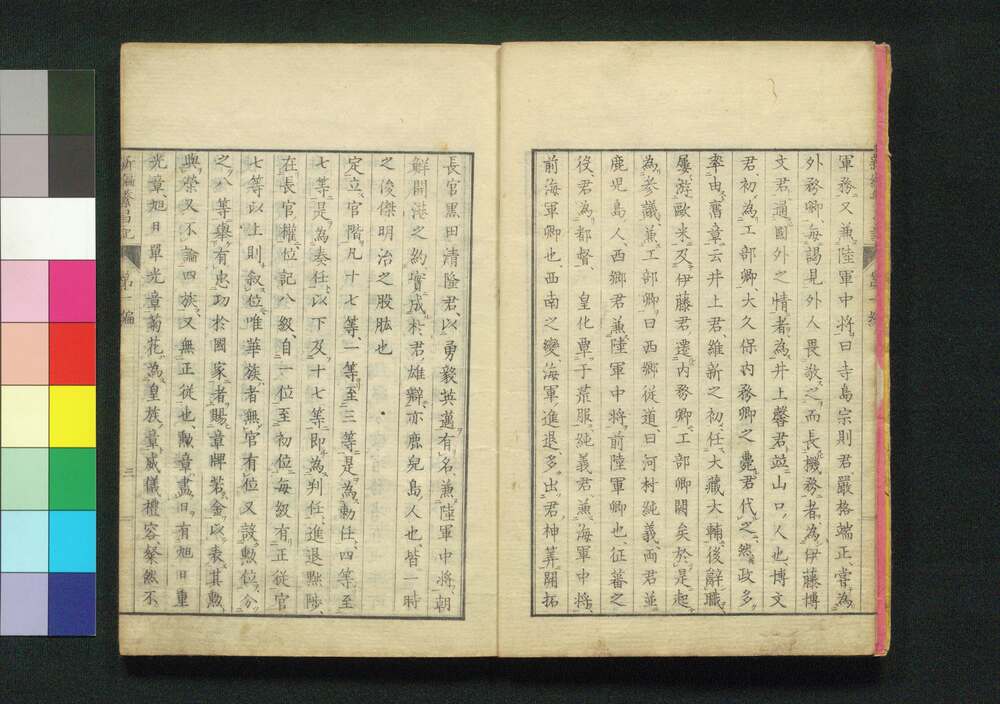 軍務又兼陸軍中將曰寺島宗則君嚴格端正嘗為
外務卿每謁見外人畏敬之而長機務者為伊藤博
文君通國外之情者為井上馨君並山口人也博文
君初為工部卿大久保內務卿之薨君代之然政多
率由舊章云井上君維新之初任大藏大輔後辭職
屢游歐米及伊藤君遷內務卿工部卿闕矣於是起
為參議兼工部卿曰西鄉從道曰河村純義兩君並
鹿兒島人西鄉君兼陸軍中將前陸軍卿也征蕃之
役君為都督 皇化覃于荒服純義君兼海軍中將
前海軍卿也西南之變海軍進退多出君神算開拓
長官黑田清隆君以勇毅英邁有名兼陸軍中將朝
鮮開港之約實成於君雄辯亦鹿兒島人也皆一時
之俊傑明治之股肱也
定立官階凡十七等一等至三等是為勅任四等至
七等是為奏任以下及十七等即為判任進退黜陟
在長官權位記八級自一位至初位每級有正從官
七等以上則敘位唯華族者無官有位又設勲位分
之八等舉有忠功於國家者賜章牌若金以表其勲
與榮又不論四族又無正從也勲章畫日有旭日重
光章旭日單光章菊花為皇族章威儀禮容粲然不
新編繁昌記 第一編 二